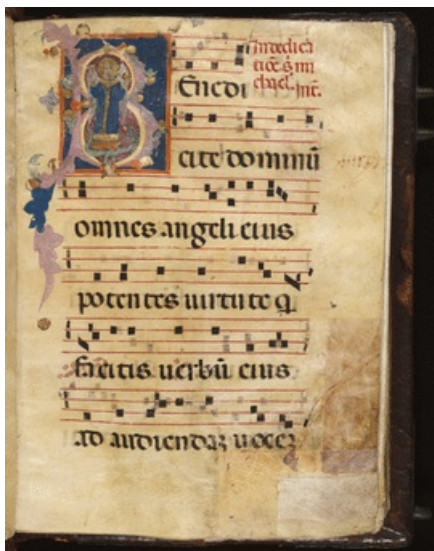 In dedica
tiōe s̄ mi
chael. Int.
Benedi
cite dominū
omnes angeli eius
potentes uirtute q̄
facitis uerbū eius
ad audiendaꝫ uoceꝫ